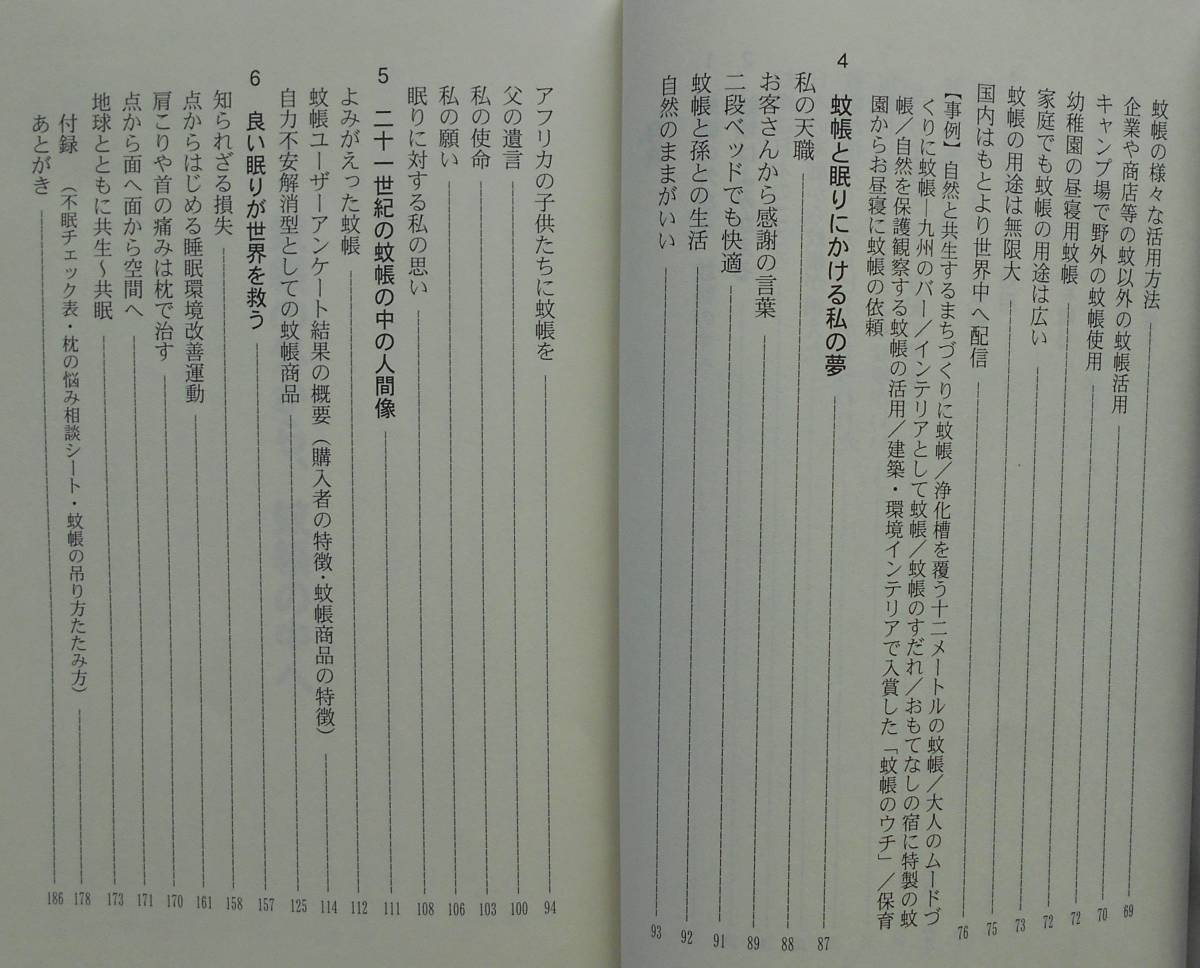 蚊帳の様々な活用方法 69
企業や商店等の蚊以外の蚊帳活用 70
キャンプ場で野外の蚊帳使用 72
幼稚園の昼寝用蚊帳 72
家庭でも蚊帳の用途は広い 73
蚊帳の用途は無限大 75
国内はもとより世界中へ配信 76
【事例】自然と共生するまちづくりに蚊帳／浄化槽を覆う十二メートルの蚊帳／大人のムードづ
くりに蚊帳―九州のバー／インテリアとして蚊帳／蚊帳のすだれ／おもてなしの宿に特製の蚊
帳／自然を保護観察する蚊帳の活用／建築・環境インテリアで入賞した「蚊帳のウチ」／保育
園からお昼寝に蚊帳の依頼
4 蚊帳と眠りにかける私の夢 87
私の天職 88
お客さんから感謝の言葉 89
二段ベッドでも快適 91
蚊帳と孫との生活 92
自然のままがいい 93
アフリカの子供たちに蚊帳を 94
父の遺言 100
私の使命 103
私の願い 106
眠りに対する私の思い 108
5 二十一世紀の蚊帳の中の人間像 111
よみがえった蚊帳 112
蚊帳ユーザーアンケート結果の概要（購入者の特徴・蚊帳商品の特徴） 114
自力不安解消型としての蚊帳商品 125
6 良い眠りが世界を救う 157
知られざる損失 158
点からはじめる睡眠環境改善運動 161
肩こりや首の痛みは枕で治す 170
点から面へ面から空間へ 171
地球とともに共生～共眠 173
付録 （不眠チェック表・枕の悩み相談シート・蚊帳の吊り方たたみ方） 178
あとがき 186